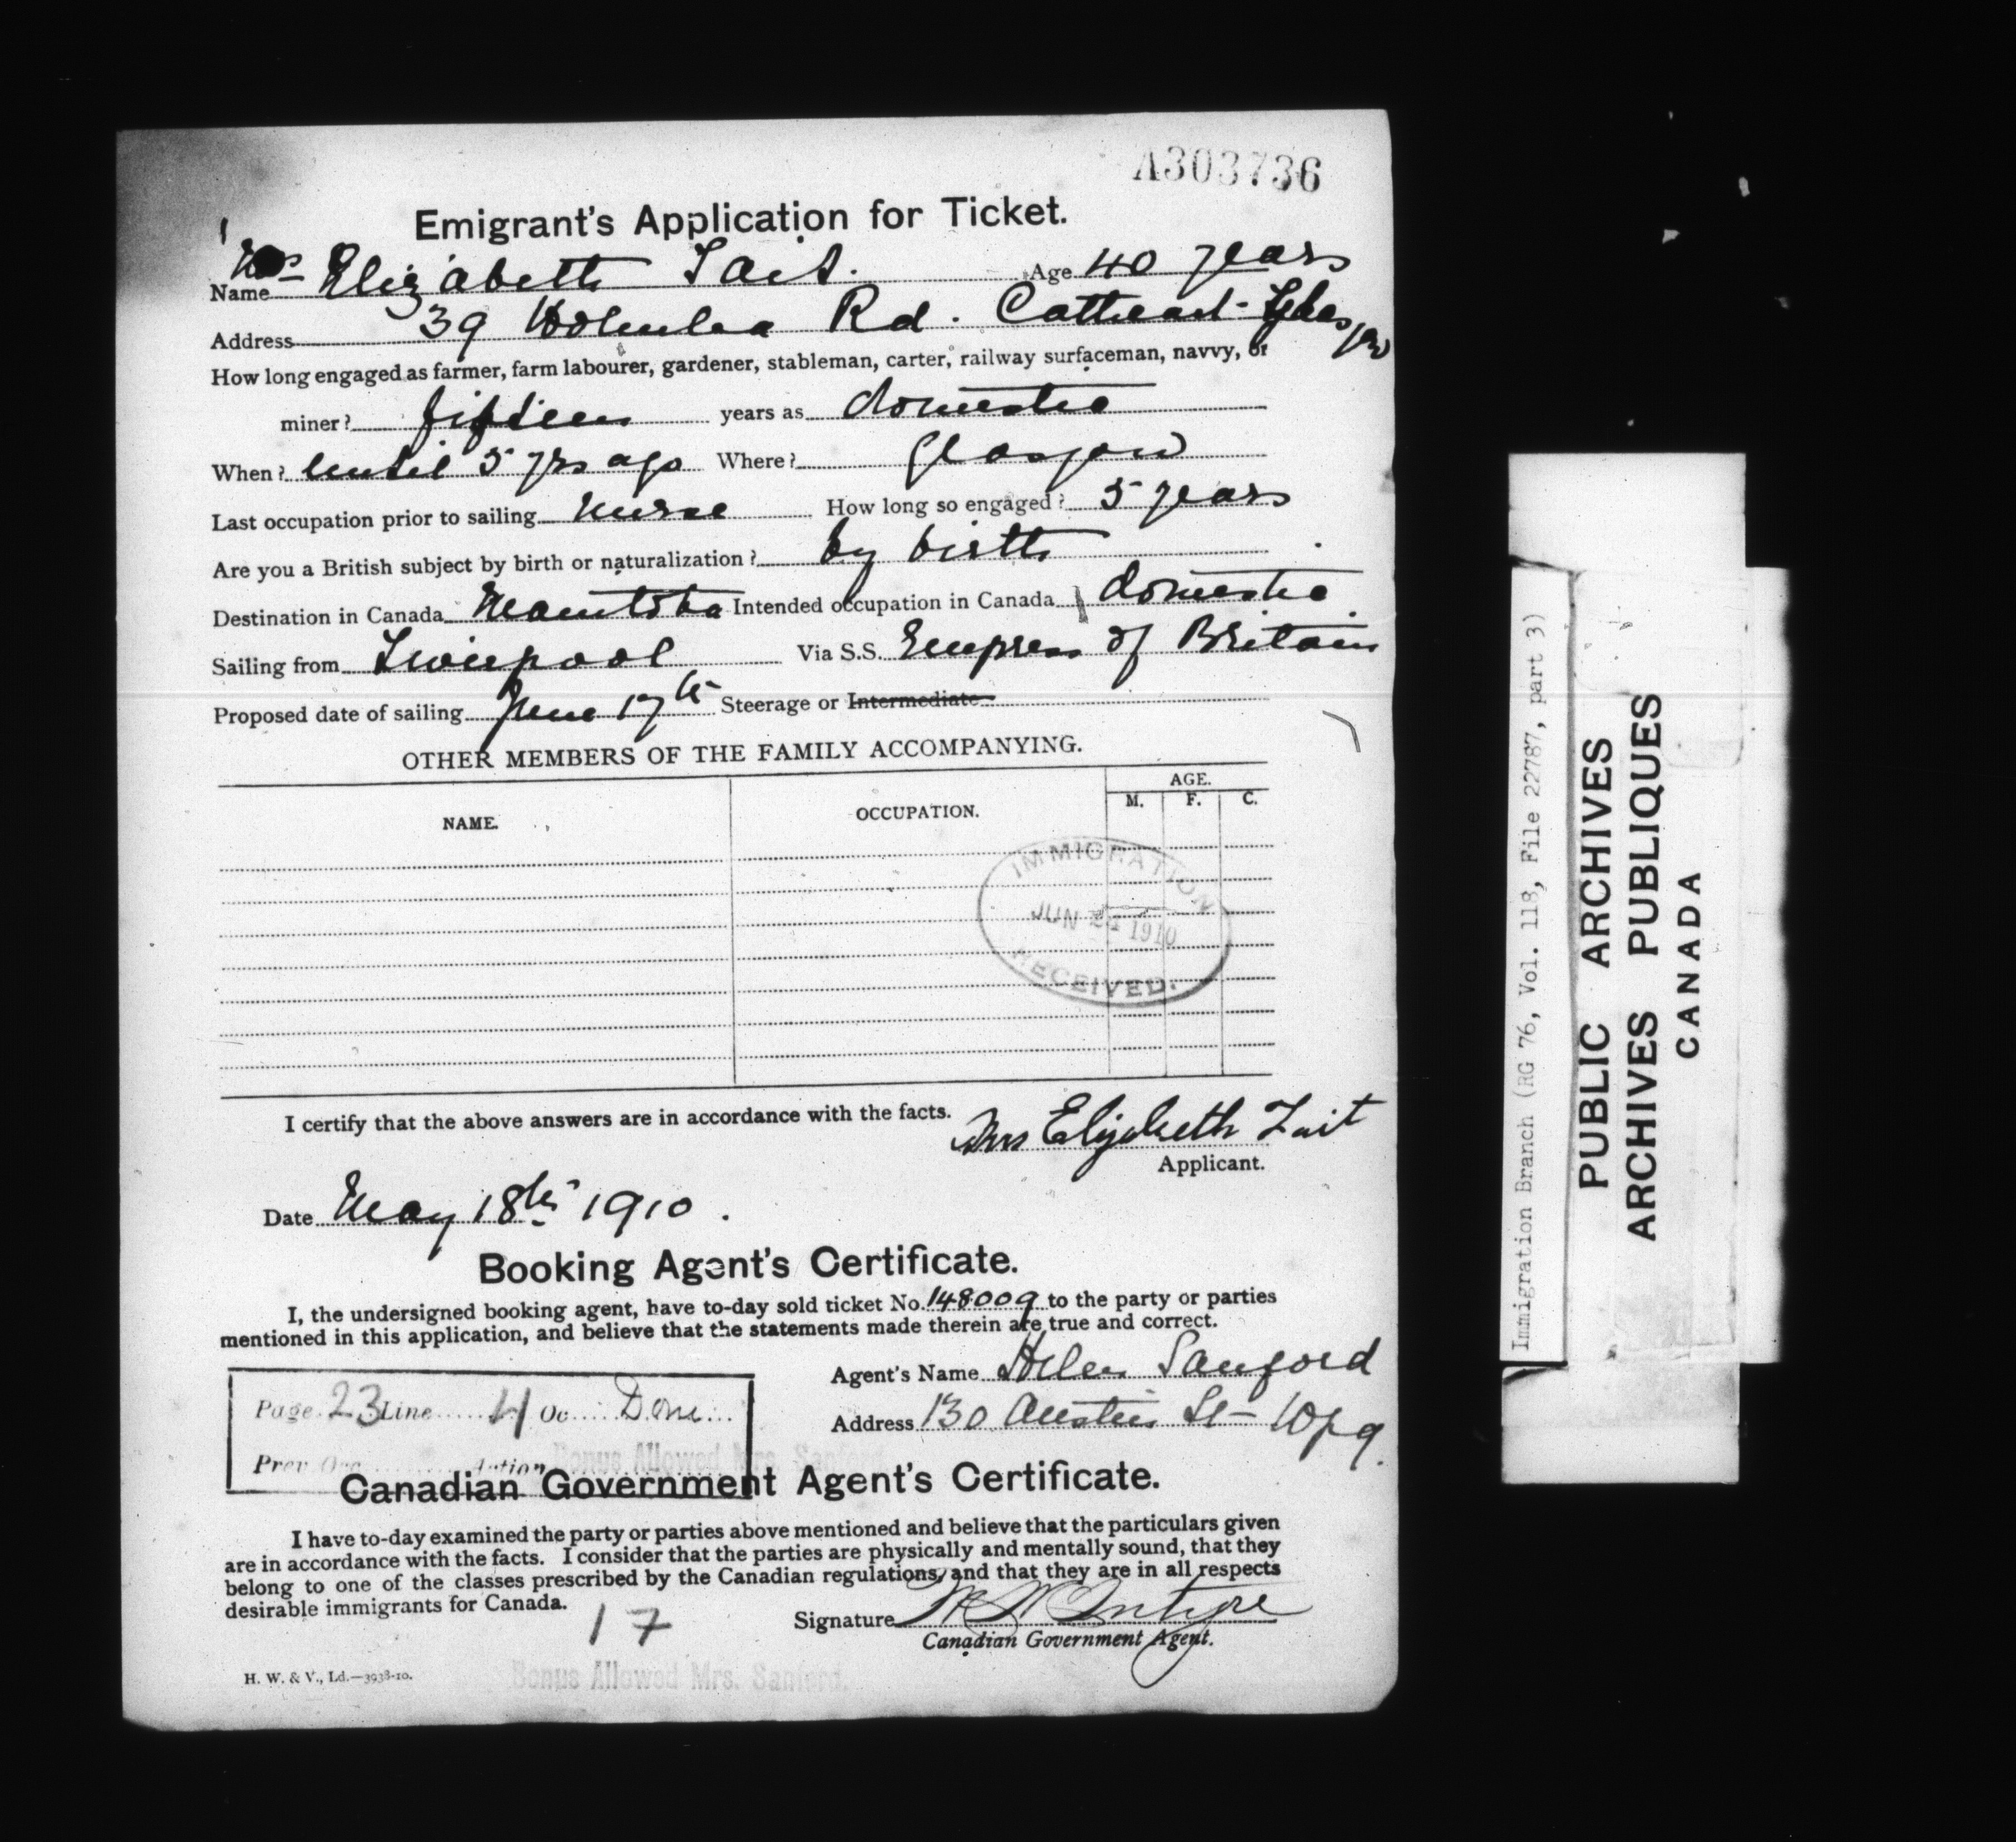 A303736
Emigrant's Application for Ticket.
Name Mrs Elizabeth Tait. Age 40 years
Address 39 Holmlea Rd. Cathcart - Glasgow
How long engaged as farmer, farm labourer, gardener, stableman, carter, railway surfaceman, navvy, or
miner? fifteen years as domestic
When? Until 5 yrs ago Where? Glasgow
Last occupation prior to sailing Nurse How long so engaged? 5 years
Are you a British subject by birth or naturalization? by birth
Destination in Canada Manitoba Intended occupation in Canada domestic
Sailing from Liverpool Via S.S. Empress of Britain
Proposed date of sailing June 17th Steerage or Intermediate
OTHER MEMBERS OF THE FAMILY ACCOMPANYING.
NAME. OCCUPATION. AGE.
M. F. C.
IMMIGRATION
JUN 1910
RECEIVED.
I certify that the above answers are in accordance with the facts.
Mrs Elizabeth Tait
Applicant.
Date May 18th 1910.
Booking Agent's Certificate.
I, the undersigned booking agent, have to-day sold ticket No. 148009 to the party or parties
mentioned in this application, and believe that the statements made therein are true and correct.
Agent's Name Helen Sanford
Address 130 Austin St - Wpg.
Page 23 Line 4 Oc Dom
Prev Occ Action
Bonus Allowed Mrs. Sanford.
Canadian Government Agent's Certificate.
I have to-day examined the party or parties above mentioned and believe that the particulars given
are in accordance with the facts. I consider that the parties are physically and mentally sound, that they
belong to one of the classes prescribed by the Canadian regulations, and that they are in all respects
desirable immigrants for Canada.
17
Signature McIntyre
Canadian Government Agent.
H. W. & V., Ld.—3938-10.
Bonus Allowed Mrs. Sanford.
Immigration Branch (RG 76, Vol. 118, File 22787, part 3)
PUBLIC ARCHIVES
ARCHIVES PUBLIQUES
CANADA